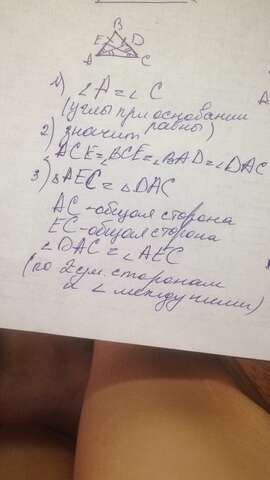 B
E D
A C
1) ∠A = ∠C
(углы при основании
равны)
2) значит
ACE = ∠BCE = ∠BAD = ∠DAC
3) △AEC = △DAC
AC - общая сторона
EC - общая сторона
∠DAC = ∠AEC
(по 2ум. сторонам
и ∠ между ними)
A